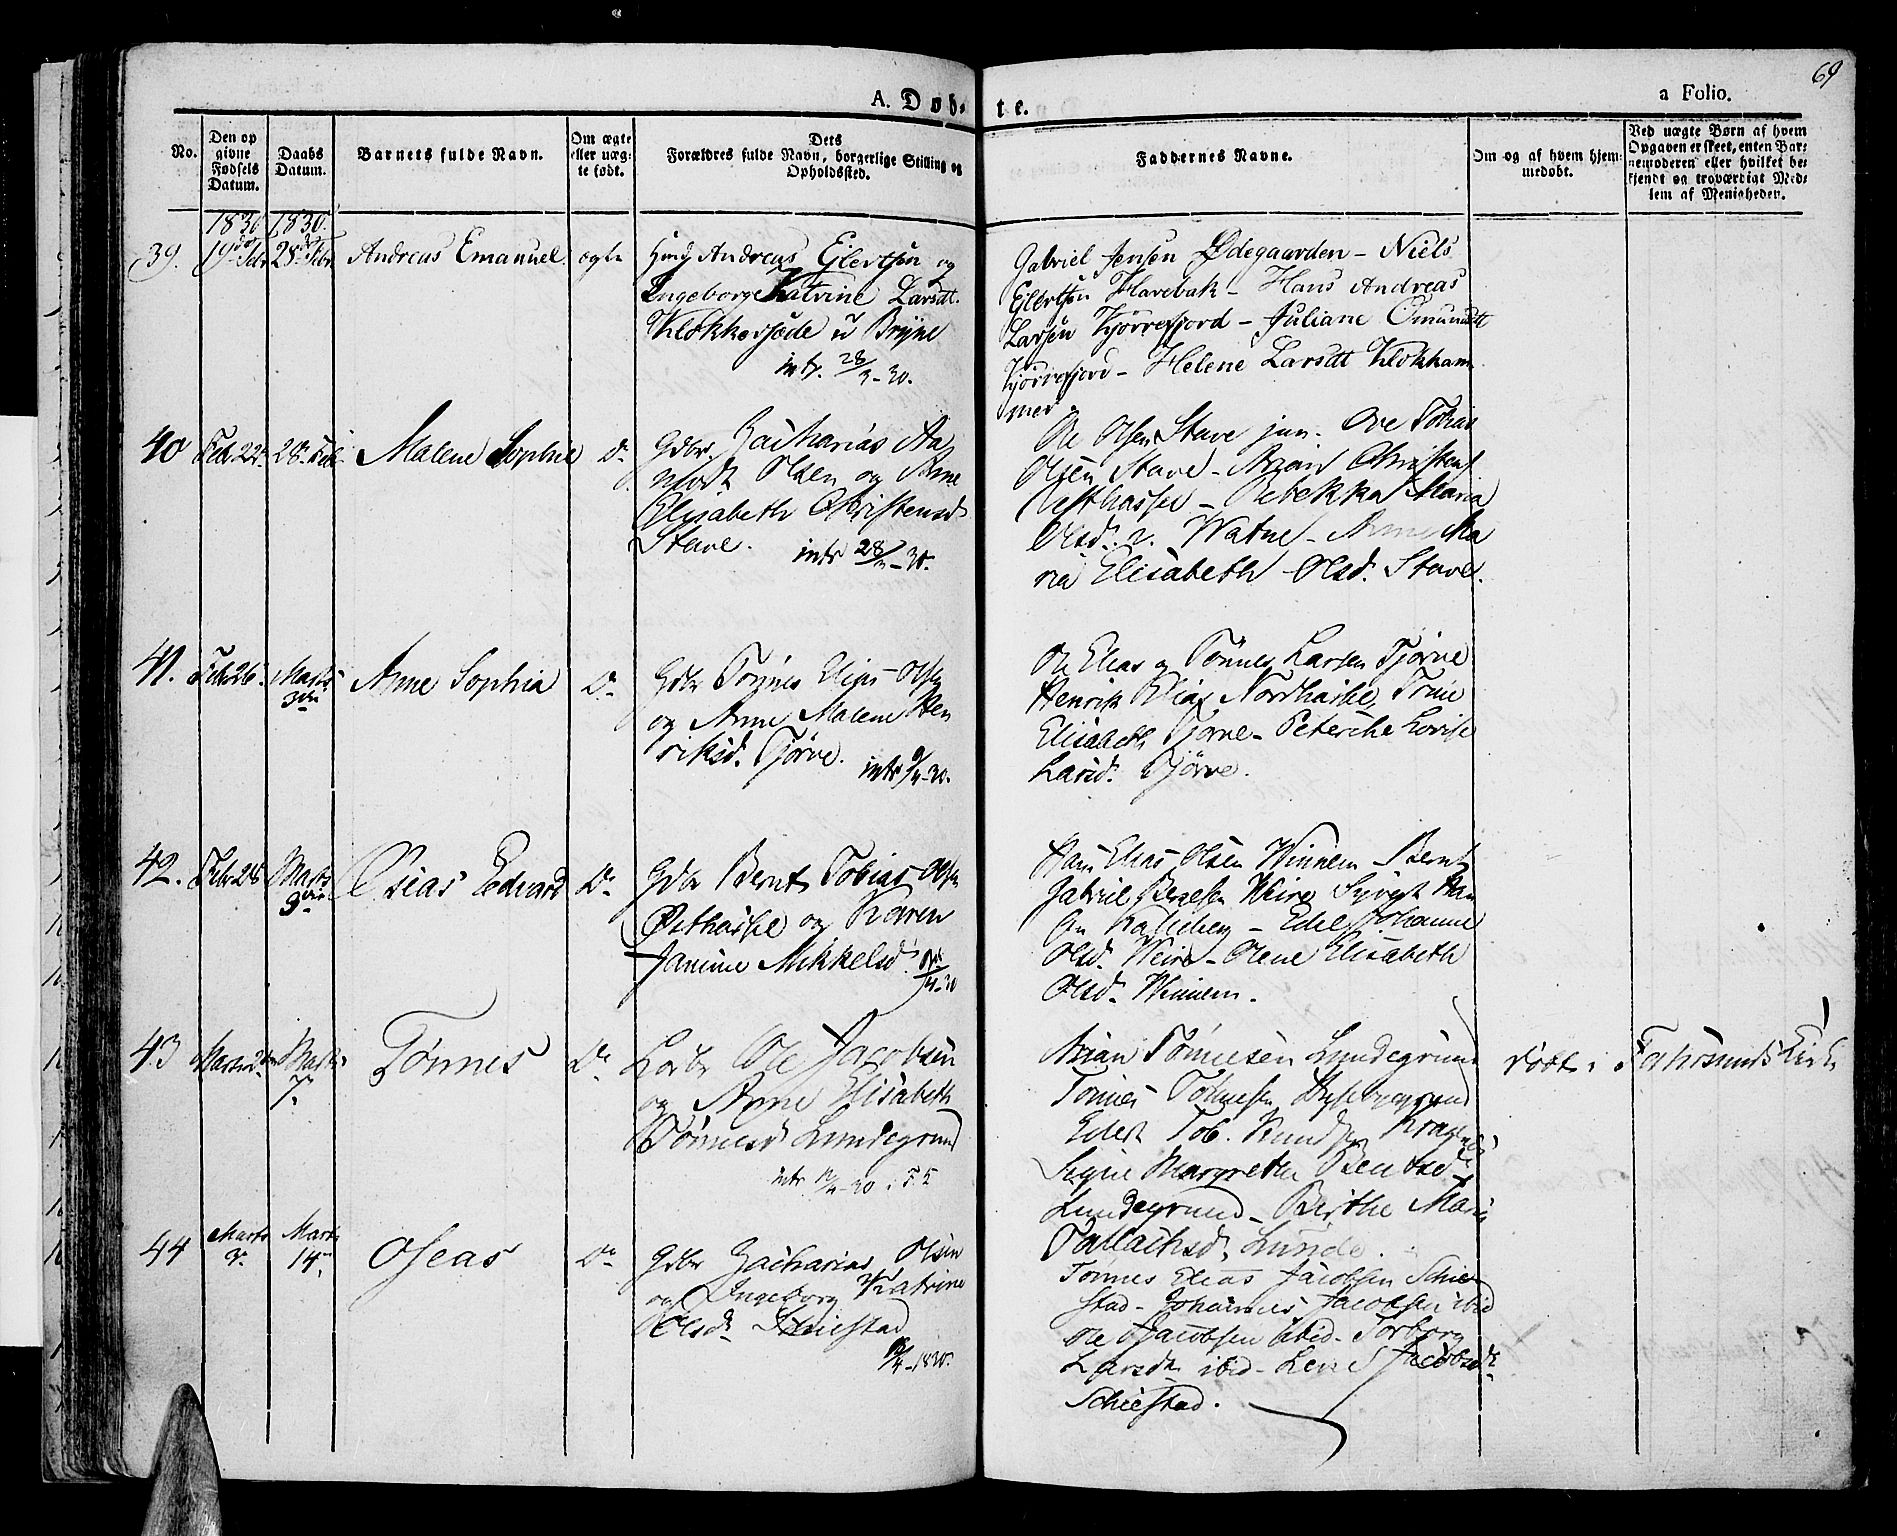 69
A. Døb-
te.
a Folio.
No.
Den op
givne
Fødsels
Datum.
Daabs
Datum.
Barnets fulde Navn.
Om ægte
eller uæg-
te født.
Dets
Forældres fulde Navn, borgerlige Stilling og
Opholdssted.
Faddernes Navne.
Om og af hvem hjem-
medøbt.
Ved uægte Børn af hvem
Opgaven er skeet, enten Bar-
nemoderen eller hvilket be-
kjendt og troværdigt Med-
lem af Menigheden.
1830 1830.
39. 19 Febr 28 Febr Andreas Emanuel. ægte
Andreas Ejlertsen og
Ingeborg Katrine Larsdt.
Klokkers
intr. 28/3-30.
Gabriel Jensen Ødegaarden - Niels
Ejlertsen Havebak - Hans Andreas
Larsen Kjørrefjord - Juliane Omundsdt
Kjørrefjord - Helene Larsdt Klokham
mer
40 Feb 22 28 Feb Malene Sophie Do
Gdbr. Zacharias Aa
Olsen og Anne
Elisabeth Christensd
Stave. intr 28/3-30.
Ole Olsen Stave jun. Ove Tobias
Olsen Stave - Arian Christens
Vesthassel - Rebekka Maria
Olsd. Watne - Anne Ma
ria Elisabeth Olsd. Stave.
41. Febr 26. Marts 3die Anne Sophia Do
Gdbr Tønnes Elias Olsen
og Anne Malene Hen
riksd. Tjørve. intr 9/4-30.
Ole Elias og Tønnes Larsen Tjørve
Henrik Elias Nordhassel, Trine
Elisabeth Tjørve - Peterike Lovise
Larsd. Tjørve.
42. Febr 28 Marts Osias Edvard Do
Gdbr Bernt Tobias Olsen
Østhassel og Karen
Janine Mikkelsd.
Hans Elias Olsen Winnem Bernt
Gabriel Berntsen Weire Syvert Han
Kalleberg - Edel Johanne
Olsd. Weire - Olene Elisabeth
Olsd. Winnem.
43 Marts 2 Marts 7. Tønnes Do
Ole Jacobsen
og Anne Elisabeth
Tønnesd Lundegrund
Arian Tønnesen Lundegrund
Tønnes
Edert Tob. Knudsen
Signe Margrete Bentsd
Lundegrund - Birthe Marie
Tallachsd. Lunde.
døbt i Farsunds Kirke
44 Marts 3. Marts 14. Oseas Do
Gdbr Zacharias Olsen
og Ingeborg Katrine
Olsd. Schiestad
1830.
Tønnes Elias Jacobsen Schie
stad - Johannes Jacobsen ibid
Ole Jacobsen ibid - Torborg
Larsd. ibid - Lene S Jacobsdt.
Schiestad.